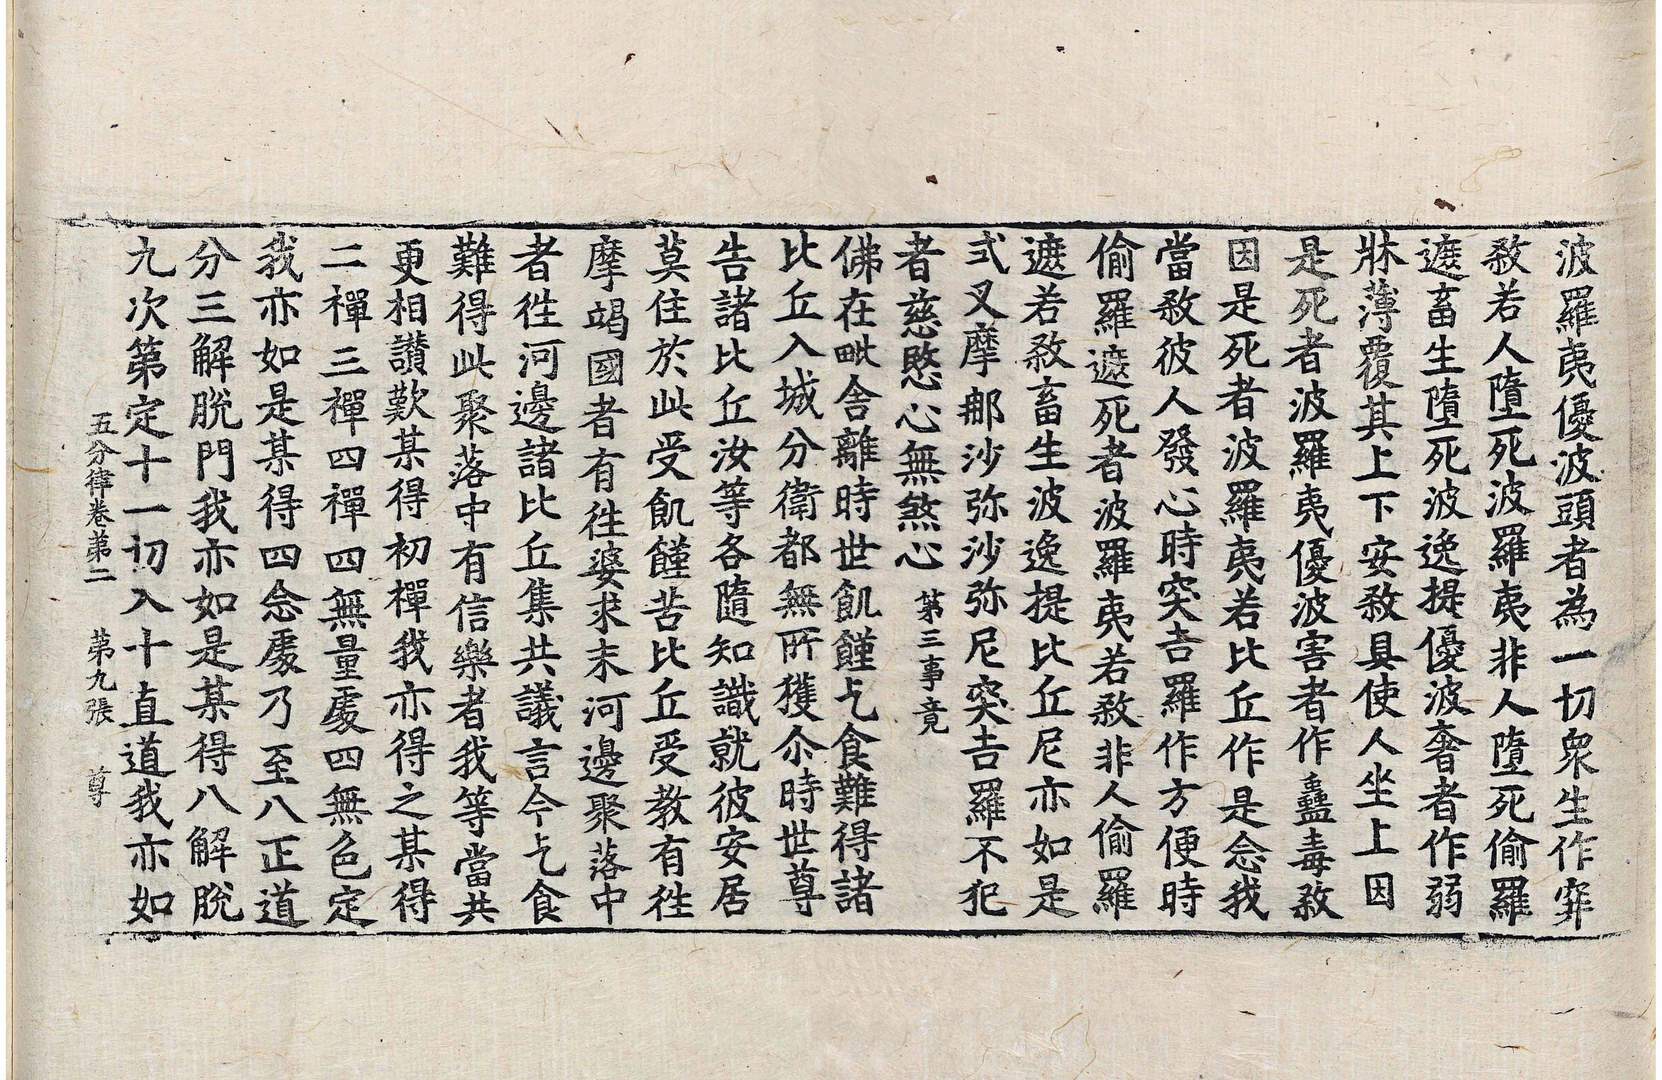 波羅夷優波頭者為一切衆生作穽
敎若人墮死波羅夷非人墮死偷羅
遮畜生墮死波逸提優波奢者作弱
牀薄覆其上下安敎具使人坐上因
是死者波羅夷優波害者作蠱毒敎
因是死者波羅夷若比丘作是念我
當敎彼人發心時突吉羅作方便時
偷羅遮死者波羅夷若敎非人偷羅
遮若敎畜生波逸提比丘尼亦如是
式叉摩那沙弥沙弥尼突吉羅不犯
者慈愍心無煞心 第三事竟
佛在毗舍離時世飢饉乞食難得諸
比丘入城分衛都無所獲尒時世尊
告諸比丘汝等各隨知識就彼安居
莫住於此受飢饉苦比丘受教有徃
摩竭國者有徃婆求末河邊聚落中
者徃河邊諸比丘集共議言今乞食
難得此聚落中有信樂者我等當共
更相讃歎某得初禪我亦得之某得
二禪三禪四禪四無量處四無色定
我亦如是某得四念處乃至八正道
分三解脫門我亦如是某得八解脫
九次第定十一切入十直道我亦如
五分律卷第二 第九張 尊